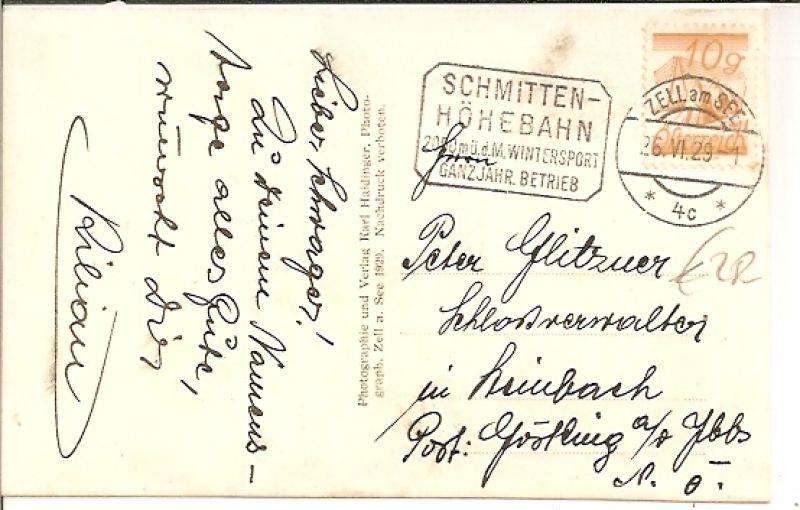 Lieber Schwager!
Zu Deinem Namens-
tage alles Gute,
wünscht Dir
Kilian
Photographie und Verlag Karl Haidinger, Photo-
graph, Zell a. See 1929. Nachdruck verboten.
SCHMITTEN-
HÖHEBAHN
2000 m ü. d. M. WINTERSPORT
GANZJÄHR. BETRIEB
10g
ZELL am SEE
26.VI.29
* 4c *
Herrn
Peter Glitzner
Schloßverwalter
in Steinbach
Post: Göstling a/d Ybbs
N. Ö.